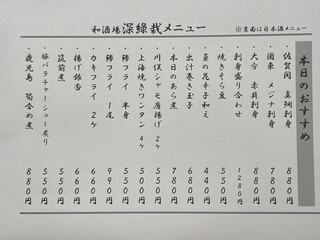 和酒場 深緑哉メニュー
※裏面は日本酒メニュー
本日のおすすめ
・佐賀関 真鯛刺身 880円
・国東 メジナ刺身 780円
・大分 赤貝刺身 880円
・刺身盛り合わせ 1280円
・焼きそら豆 550円
・菜の花辛子和え 440円
・出汁巻き玉子 680円
・本日のあら煮 780円
・川俣シャモ唐揚げ 2ケ 550円
・上海焼きワンタン 4ケ 550円
・鯵フライ 半身 500円
・鯵フライ 1尾 990円
・カキフライ 2ケ 660円
・揚げ銀杏 660円
・筑前煮 550円
・豚バラチャーシュー炙り 550円
・鹿児島 筍含め煮 880円